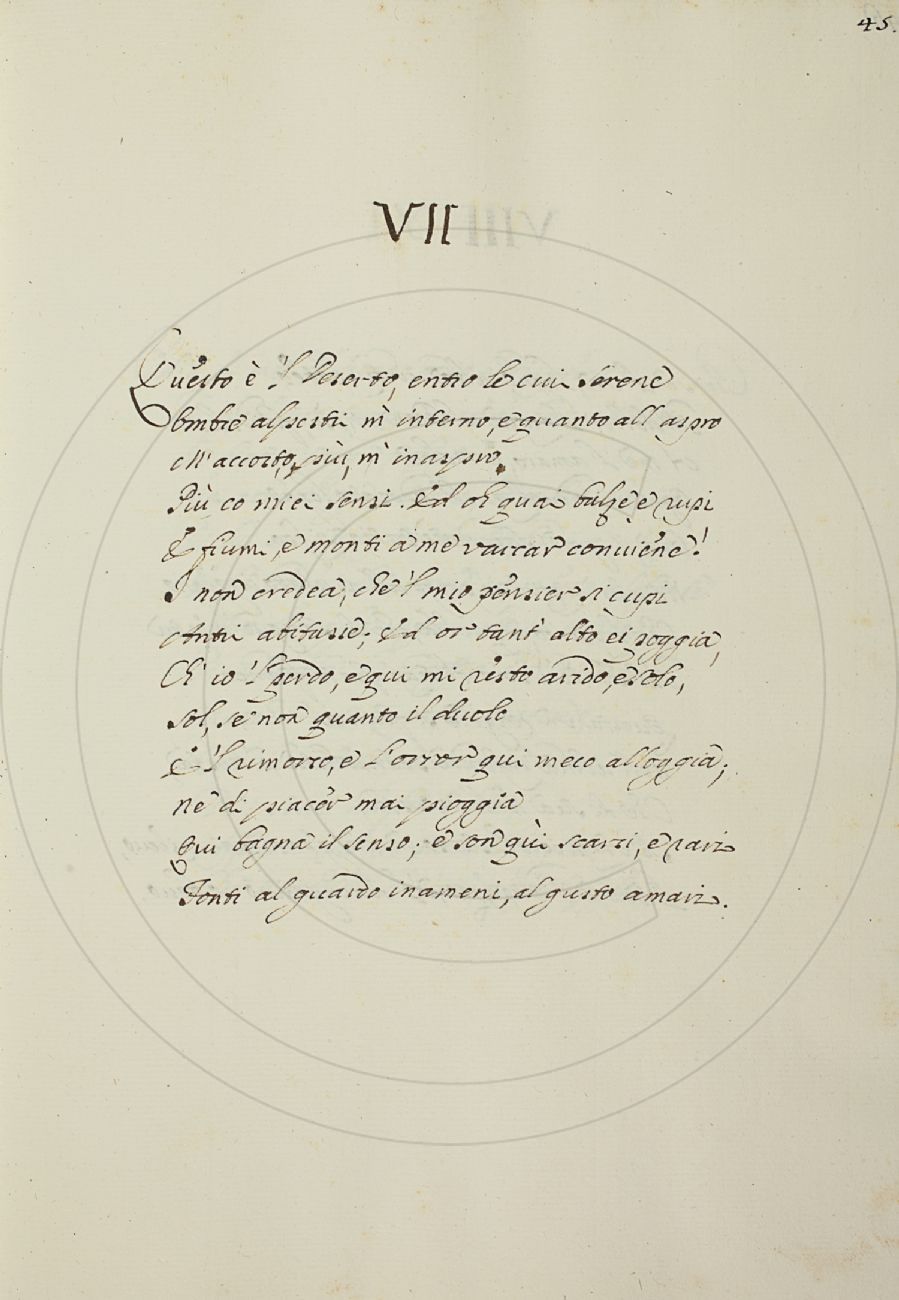 45.
VII
Questo è 'l Deserto, entro le cui serene
Ombre alpestri m'interno, e quanto all'aspro
M'accosto, più m'inaspro
Più co miei sensi. Ed oh quai balze, e rupi
E fiumi, e monti a me varcar conviene!
I non credea, che 'l mio pensier sì cupi
Antri abitasse; Ed or tant'alto ei poggia,
Ch'io 'l perdo, e qui mi resto arido, e solo,
Sol, se non quanto il duolo
E 'l rimorso, e l'orror qui meco alloggia;
Nè di piacer mai pioggia
Qui bagna il senso; e son quì scarsi, e rari
Fonti al guardo inameni, al gusto amari.